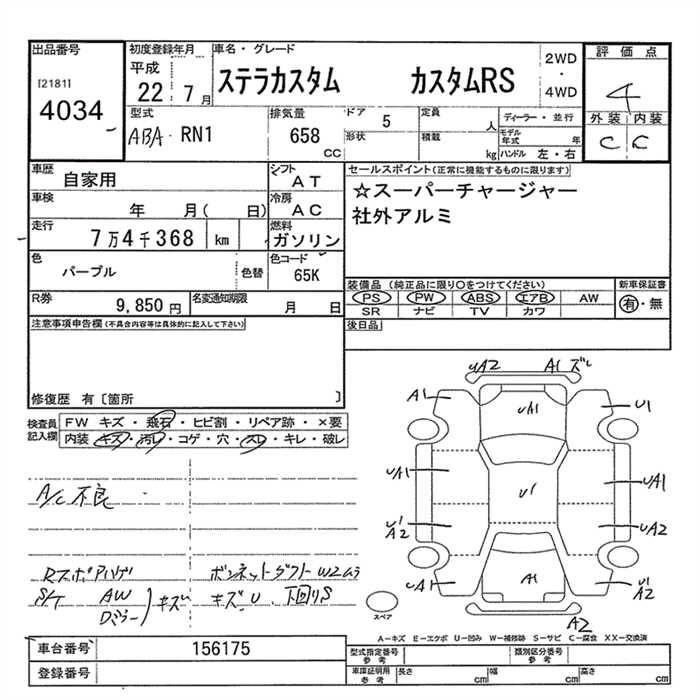 出品番号
[2181]
4034
初度登録年月
平成
22 7月
車名・グレード
ステラカスタム カスタムRS
2WD
・
4WD
評価点
4
外装 内装
C C
型式
ABA- RN1
排気量
658
cc
ドア 5
形状
定員
人
積載
kg
ディーラー・並行
モデル年式 年
ハンドル 左・右
車歴
自家用
シフト
AT
車検
年 月( 日)
冷房
AC
走行
7万4千368 km
燃料
ガソリン
色
パープル
色替
色コード
65K
R券
9,850円
名変通知期限
月 日
セールスポイント(正常に機能するものに限ります)
☆スーパーチャージャー
社外アルミ
装備品 (純正品に限り○をつけてください)
PS PW ABS エアB AW
SR ナビ TV カワ
新車保証書
有・無
後日品
注意事項申告欄(不具合内容等は具体的に記入して下さい)
修復歴 有〔箇所 〕
検査員
記入欄
FW キズ・飛石・ヒビ割・リペア跡・×要
内装 キズ・汚レ・コゲ・穴・スレ・キレ・破レ
A/C 不良
Rスポアハゲ
S/K AW
Dミラー)キズ
ボンネット ダクト W2ムラ
キズ U 下回りS
UA2 A1 ズレ
A1
UA1
U1
UA1
U1
UA1
U1
A2
UA2
UA1
A1
U1
A2
A2
スペア
A-キズ E-エクボ U-凹み W-補修跡 S-サビ C-腐食 XX-交換済
車台番号 156175
登録番号
型式指定番号
参考
類別区分番号
参考
車庫証明用
参考
長さ cm
幅 cm
高さ cm